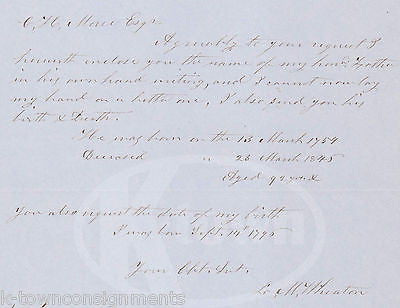 C. H. Morse Esqr
Agreeably to your request I
herewith enclose you the name of my hond. Father
in his own hand writing, and I cannot now lay
my hand on a better one, I also send you his
birth & Death.
He was born on the 13 March 1754
Deceased " 23 March 1845
Aged 92 years
You also request the date of my birth
I was born Sept. 14th 1795
Your Obt. Sert.
L. M. Wheaton
k-townconsignments